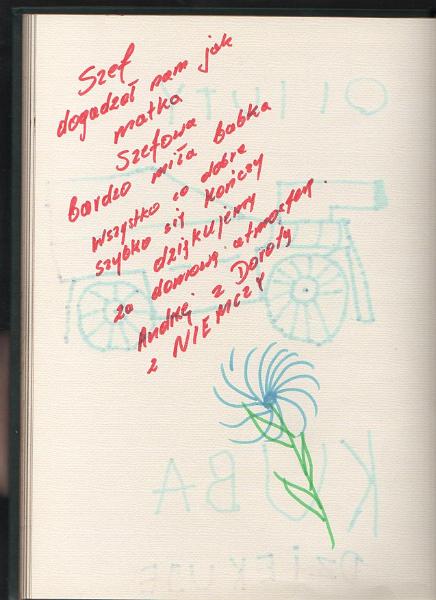 Szef
dogadzał nam jak
matka
Szefowa
Bardzo miła babka
Wszystko co dobre
szybko się kończy
dziękujemy
za domową atmosferę
Andrzej z Doroty
z NIEMCZY
KUBA
DZIEKUJE